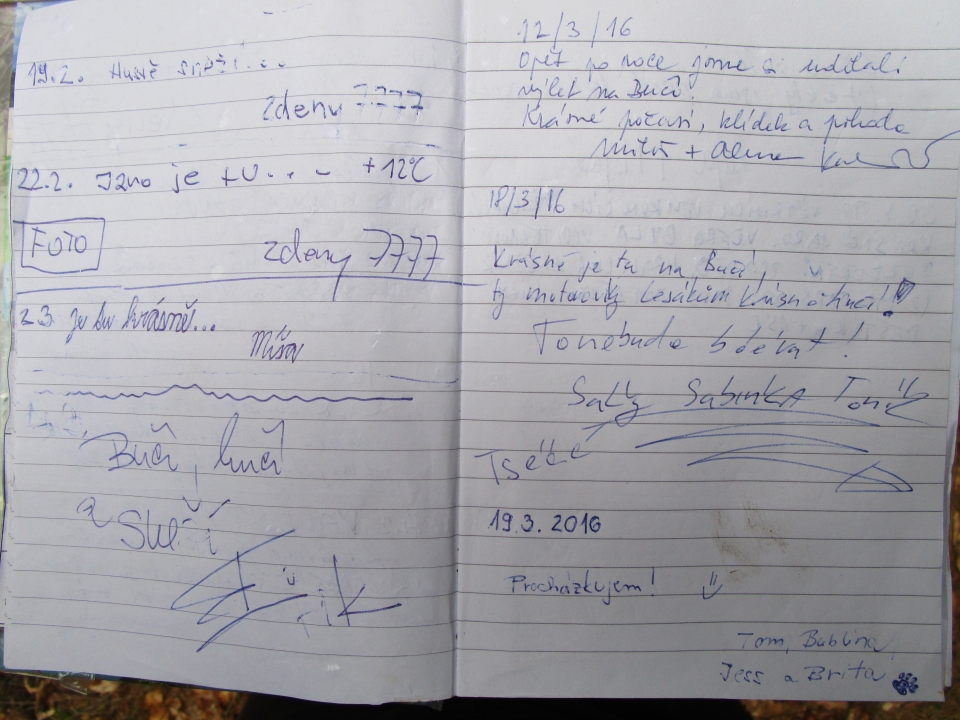 19.2. Hustě sněží...
zdeny 7777
22.2. Jaro je tu... +12°C
FOTO
zdeny 7777
2.3. je tu krásně...
Míša
Bučí, hučí
a sluší
12/3/16
Opět po roce jsme si udělali
výlet na Bučí.
Krásné počasí, klídek a pohoda
+ Alena
18/3/16
Krásně je tu na Bučí,
ty motorovky lesákům krásně hučí!
To nebudo bdekat!
Sally Sabinka Toník
19.3.2016
Procházkujem!
Tom, Bublina
Jess a Brita